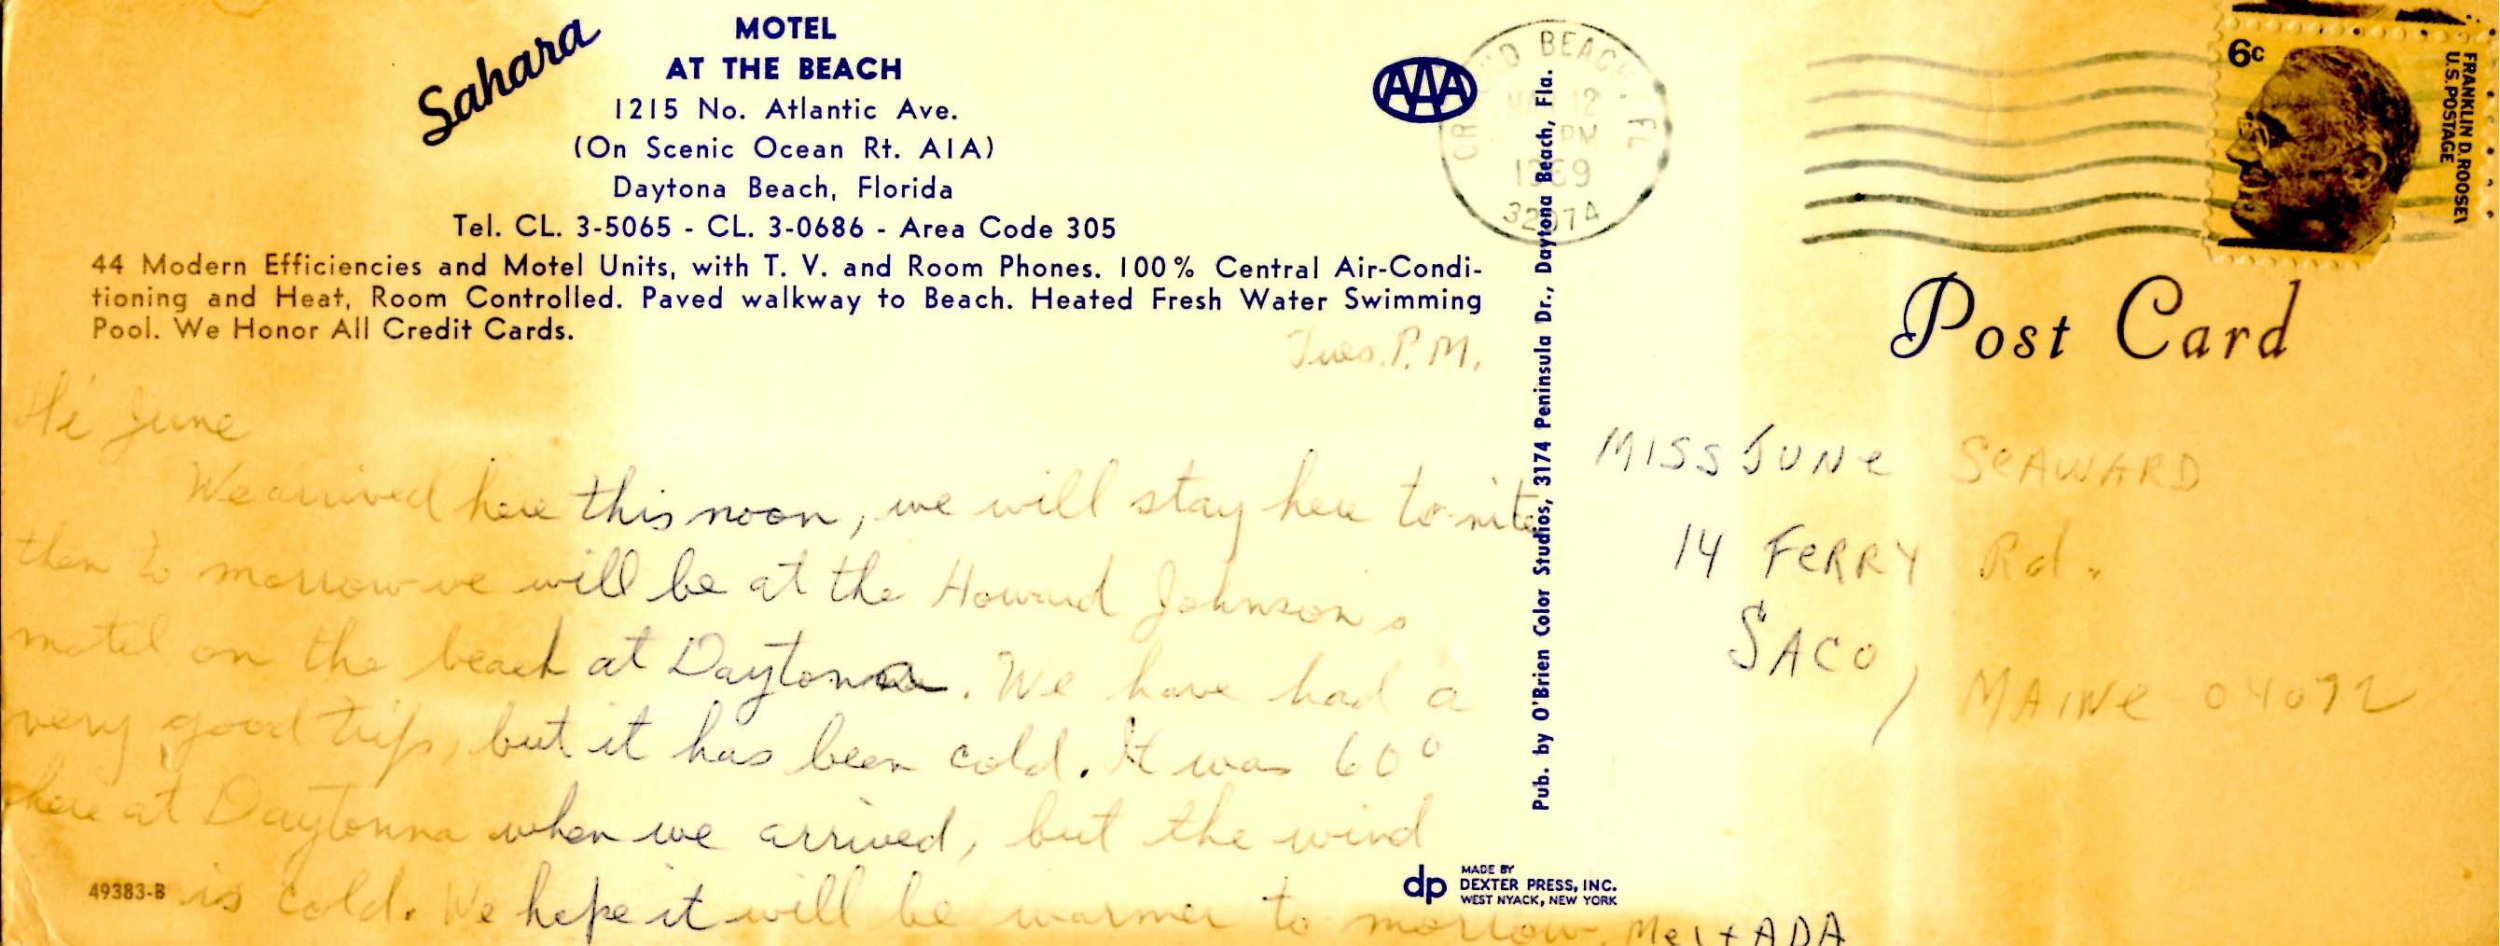 Sahara
MOTEL
AT THE BEACH
1215 No. Atlantic Ave.
(On Scenic Ocean Rt. A1A)
Daytona Beach, Florida
Tel. CL. 3-5065 - CL. 3-0686 - Area Code 305
44 Modern Efficiencies and Motel Units, with T. V. and Room Phones. 100% Central Air-Condi-
tioning and Heat, Room Controlled. Paved walkway to Beach. Heated Fresh Water Swimming
Pool. We Honor All Credit Cards.
Tues. P.M.
Hi June
We arrived here this noon, we will stay here to-nite
then to morrow we will be at the Howard Johnsons
motel on the beach at Daytonna. We have had a
very good trip, but it has been cold. It was 60°
here at Daytonna when we arrived, but the wind
is cold. We hope it will be warmer to morrow. Mel + ADA
49383-B
AAA
BEACH, FL
12
PM
1969
32074
Pub. by O'Brien Color Studios, 3174 Peninsula Dr., Daytona Beach, Fla.
dp
MADE BY
DEXTER PRESS, INC.
WEST NYACK, NEW YORK
6c
FRANKLIN D. ROOSEV
U.S. POSTAGE
Post Card
MISS JUNe SeAWARD
14 FeRRY Rd.
SACO, MAINe 04072